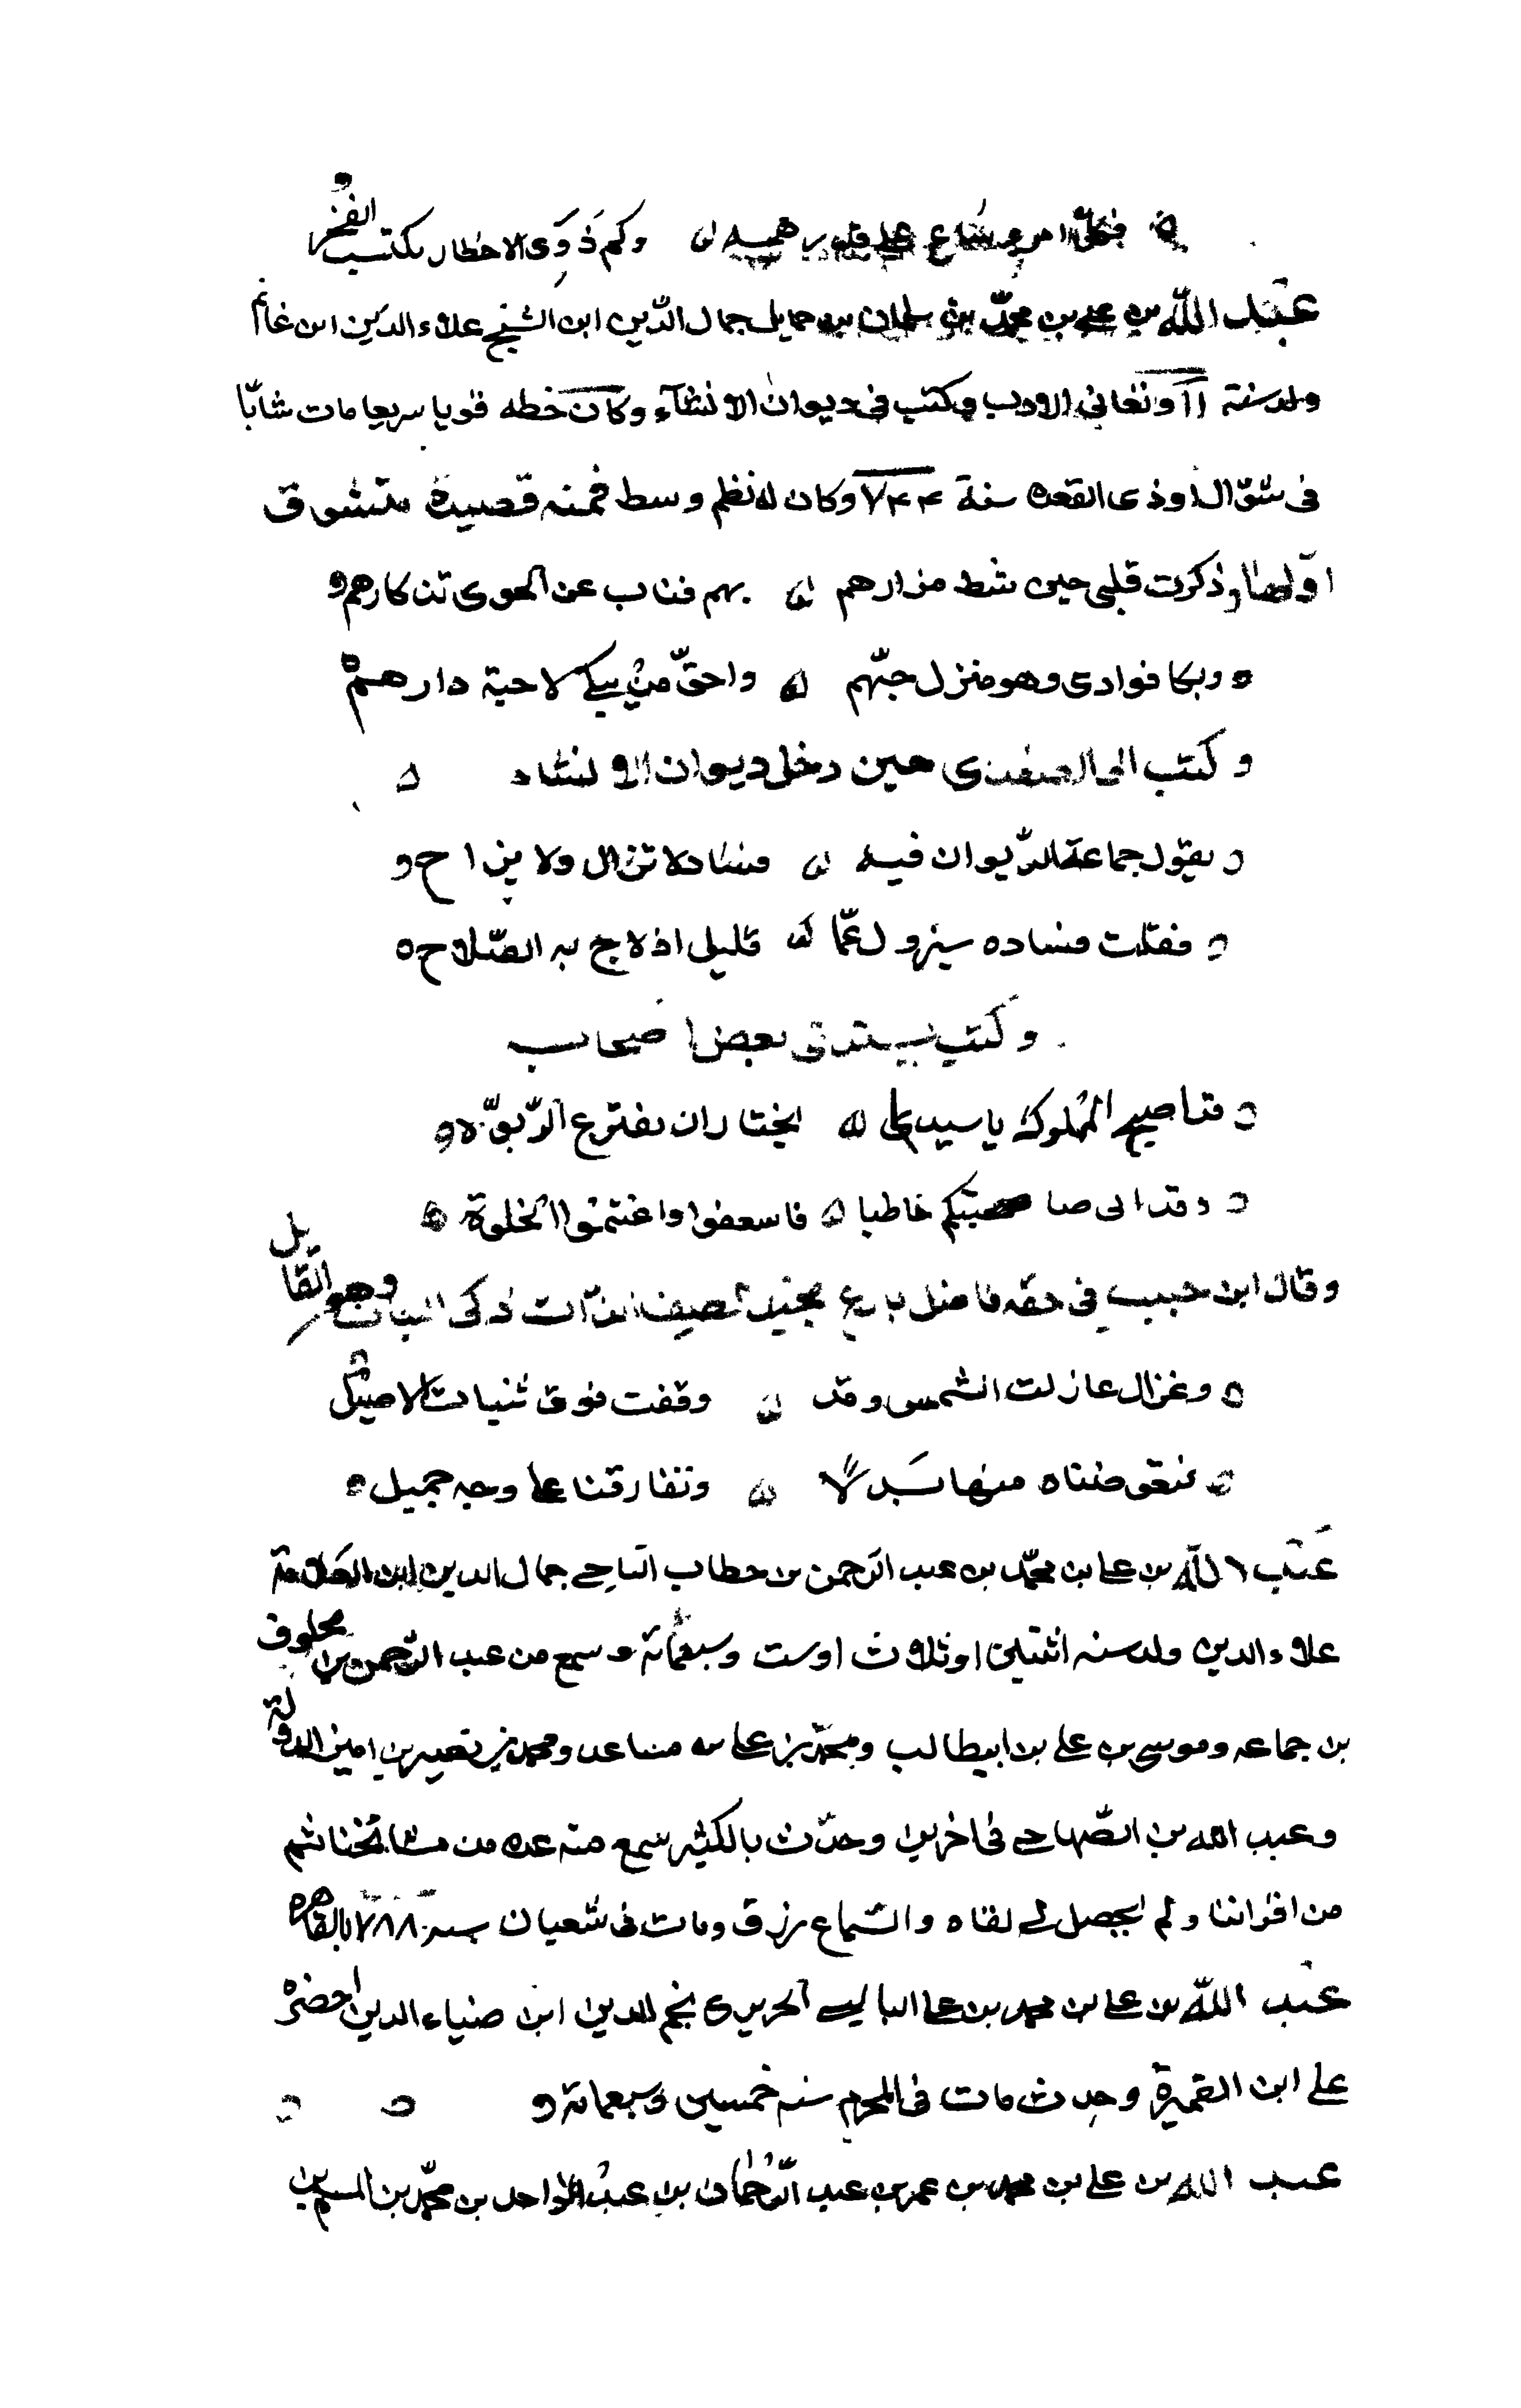 فكل امرء ساع على قدر همه وكم ذوى الاخطار يكتسب الفخر
عبد الله بن على بن محمد بن سلمان بن حمايل جمال الدين ابن الشيخ علاء الدين ابن غانم
ولد سنة ٧١١ وتعانى الادب وكتب فى ديوان الانشآء وكان خطه قويا سريعا مات شابّا
فى شوّال او ذى القعده سنة ٧٤٤ وكان له نظم وسط فمنه قصيدة يتشوق
اوّلها وذكرت قلبى حين شط مزارهم بهم فناب عن الهوى تذكارهم
وبكا فوادى وهو منزل حبّهم واحقّ من يبكى لاحبة دارهم
وكتب الى الصفدى حين دخل ديوان الانشاء
يقول جماعة الدّيوان فيه فساد لا تزال ولا يزاح
فقلت فساده سيزول عمّا قليل اذ لاح به الصّلاح
وكتب يستدعى بعض اصحابه
قد اصبح المملوك يا سيدى يختار ان يفترع الرّبوّة
وقد اتى صا صحبتكم خاطبا فاسعفوا واغتنموا الخلوة
وقال ابن حبيب فى حقه فاضل بارع مجيد لطيف الذات ذكى النبات وهو القايل
وغزال عازلت الشمس وقد وقفت فوق ثنيات الاصيل
منها بدلًا وتفارقنا على وجه جميل
عبد الله بن على بن محمّد بن عبد الرّحمن بن خطاب الباجى جمال الدين ابن العلامة
علاء الدين ولد سنه اثنتين او ثلاث اوست وسبعمائة وسمع من عبد الرّحمن بن مخلوف
بن جماعه وموسى بن على بن ابيطالب ومحمّد بن على بن ساعد ومحمد بن نصير بن امين الدولة
وعبد الله بن الصّنهاجى فى اخرين وحدّث بالكثير سمع منه عده من مشائخنا ثم
من اقراننا ولم يحصل لى لقاه والسّماع رزق ومات فى شعبان سنة ٧٨٨ بالقاهره
عبد اللّه بن على بن محمد بن على البالسى الحريرى نجم الدين ابن ضياء الدين احضر
على ابن القميرة وحدث مات فى المحرم سنه خمسين وسبعمائة
عبد الله بن على بن محمد بن عمر بن عبد الرّحمان بن عبد الواحد بن محمّد بن المسلم بن